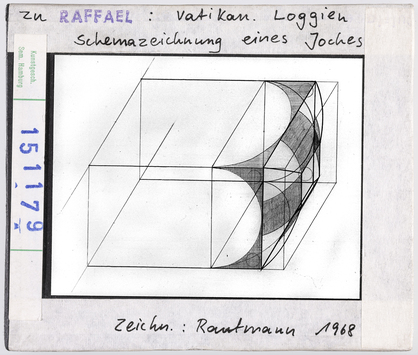 zu RAFFAEL : Vatikan. Loggien
Schemazeichnung eines Joches
Kunstgesch.
Sem. Hamburg
151179
Zeichn.: Rautmann 1968